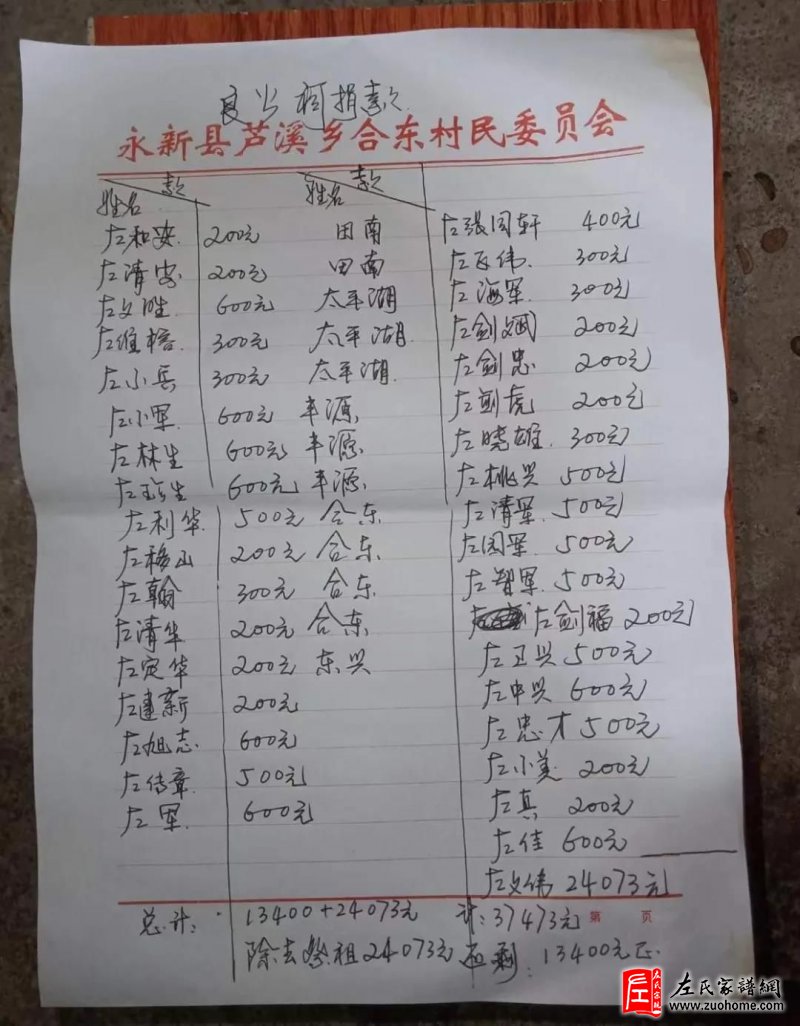 良 公 祠捐款
永新县芦溪乡合东村民委员会
姓名 款 姓名 款
左和安 200元 田南
左清安 200元 田南
左文胜 600元 太平湖
左维榕 300元 太平湖
左小兵 300元 太平湖
左小军 600元 丰源
左林生 600元 丰源
左生 600元 丰源
左利华 500元 合东
左移山 200元 合东
左翰 300元 合东
左清华 200元 合东
左定华 200元 东兴
左建新 200元
左旭志 600元
左传章 500元
左军 600元
左張国轩 400元
左飞伟 300元
左海军 300元
左剑斌 200元
左剑忠 200元
左剑虎 200元
左晓雄 300元
左桃兴 500元
左清军 500元
左国军 500元
左智军 500元
左剑福 200元
左卫兴 500元
左中兴 600元
左忠才 500元
左小美 200元
左真 200元
左佳 600元
左文伟 24073元
总计: 13400+24073元 计:37473元 第 页
除去祭祖24073元还剩:13400元正.
左氏家譜網
www.zuohome.com